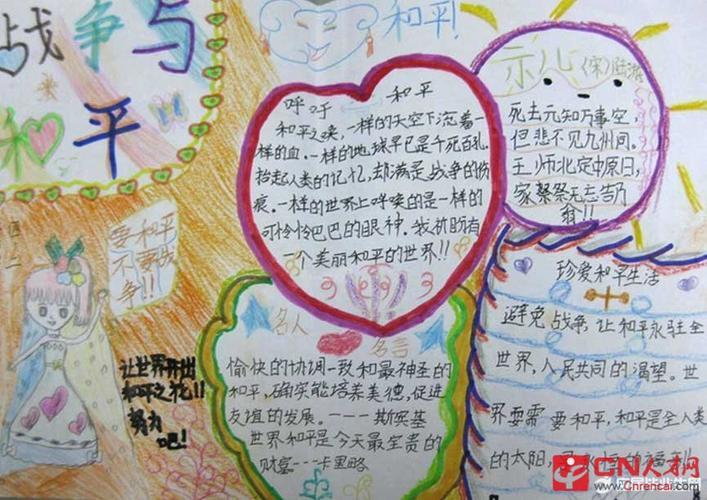 战争与
和平
和平!
呼吁 和平
和平之唤,一样的天空下流着一
样的血。一样的地球早已是千死百孔
拾起人类的记忆,却满是战争的伤
痕。一样的世界上呼唤的是一样的
可怜怜巴巴的眼神。我祈盼有
一个美丽和平的世界!!
示儿(宋)陆游
死去元知万事空,
但悲不见九州同。
王师北定中原日,
家祭祭无忘告乃
翁!!
要和平
不要战
争!!
让世界开出
和平之花!!
努力
吧!
名人
名言
愉快的协调一致和最神圣的
和平,确实能培养美德,促进
友谊的发展。----斯宾基
世界和平是今天最宝贵的
财富---卡里略
珍爱和平生活
避免战争,让和平永驻全
世界,人民共同的渴望。世
界要需 要和平,和平是全人类
的太阳,
CN人才网
www.Cnrencai.com